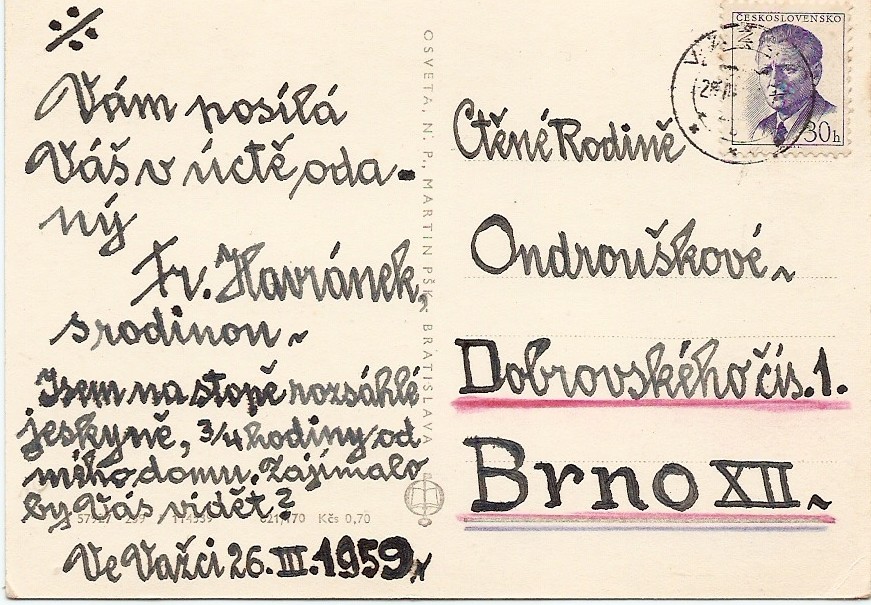 ·/·
Vám posílá
Váš v úctě oda-
ný
Fr. Havránek,
s rodinou~
Jsem na stopě rozsáhlé
jeskyně, 3/4 hodiny od
mého domu. Zajímalo
by Vás vidět?
Ve Važci 26. III. 1959
OSVETA, N. P., MARTIN PŠK - BRATISLAVA
Kčs 0,70
ČESKOSLOVENSKO
30h
Ctěné Rodině
Ondrouškové~
Dobrovského čís. 1.
Brno XII~